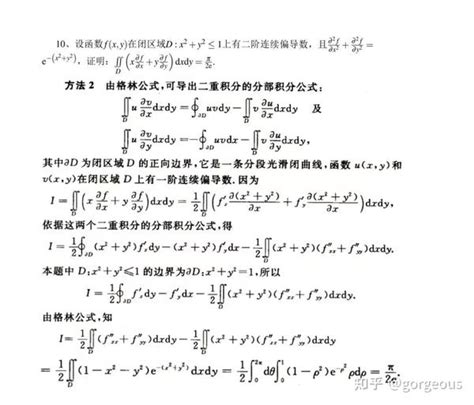 10、设函数f(x,y)在闭区域D : x² + y² ≤ 1上有二阶连续偏导数，且∂²f/∂x² + ∂²f/∂y² =
e^{-(x²+y²)}，证明：∬_D (x ∂f/∂x + y ∂f/∂y) dxdy = π/2e.
方法 2 由格林公式,可导出二重积分的分部积分公式:
∬_D u ∂v/∂x dxdy = ∮_{∂D} uvdy − ∬_D v ∂u/∂x dxdy 及
∬_D u ∂v/∂y dxdy = −∮_{∂D} uvdx − ∬_D v ∂u/∂y dxdy,
其中∂D 为闭区域 D 的正向边界,它是一条分段光滑闭曲线,函数 u(x,y)和
v(x,y)在闭区域 D 上有一阶连续偏导数.因为
I = ∬_D (x ∂f/∂x + y ∂f/∂y) dxdy = 1/2 ∬_D (f'_x ∂(x² + y²)/∂x + f'_y ∂(x² + y²)/∂x) dxdy,
依据这两个二重积分的分部积分公式,得
I = 1/2 ∮_{∂D} (x² + y²)f'_x dy − (x² + y²)f'_y dx − 1/2 ∬_D (x² + y²)(f''_{xx} + f''_{yy})dxdy.
本题中 D:x² + y² ≤ 1 的边界为∂D:x² + y² = 1,所以
I = 1/2 ∮_{∂D} f'_x dy − f'_y dx − 1/2 ∬_D (x² + y²)(f''_{xx} + f''_{yy})dxdy.
由格林公式,知
I = 1/2 ∬_D (f''_{xx} + f''_{yy})dxdy − 1/2 ∬_D (x² + y²)(f''_{xx} + f''_{yy})dxdy
= 1/2 ∬_D (1 − x² − y²)e^{-(x²+y²)}dxdy = 1/2 ∫_0^{2π} dθ ∫_0^1 (1 − ρ²)e^{-ρ²}ρdρ = π/2e.
知乎 @gorgeous